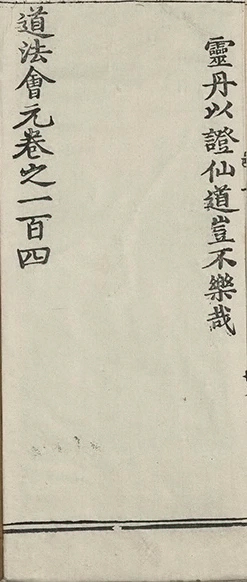 靈丹以證仙道豈不樂哉
道法會元卷之一百四